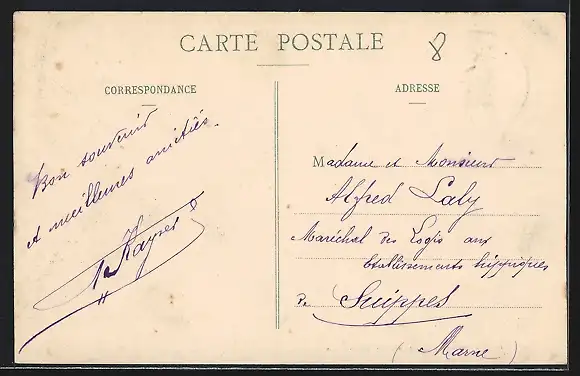 CARTE POSTALE
8
CORRESPONDANCE
ADRESSE
Bon souvenir
et meilleures amitiés.
Kayser
Madame et Monsieur
Alfred Laly
Maréchal des Logis aux
Etablissements hippiques
de Suippes
(Marne)